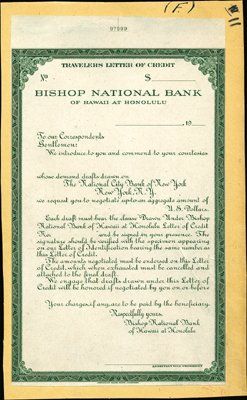 97999
(F)
TRAVELERS LETTER OF CREDIT
No $
BISHOP NATIONAL BANK
OF HAWAII AT HONOLULU
19
To our Correspondents
Gentlemen:
We introduce to you and commend to your courtesies
whose demand drafts drawn on
The National City Bank of New York
New York, N.Y.
we request you to negotiate up to an aggregate amount of
U.S. Dollars.
Each draft must bear the clause Drawn Under Bishop
National Bank of Hawaii at Honolulu Letter of Credit
No. and be signed in your presence. The
signature should be verified with the specimen appearing
on our Letter of Identification bearing the same number as
this Letter of Credit.
The amounts negotiated must be endorsed on this Letter
of Credit, which when exhausted must be cancelled and
attached to the final draft.
We engage that drafts drawn under this Letter of
Credit will be honored if negotiated by you on or before
Your charges, if any, are to be paid by the beneficiary.
Respectfully yours,
Bishop National Bank
of Hawaii at Honolulu